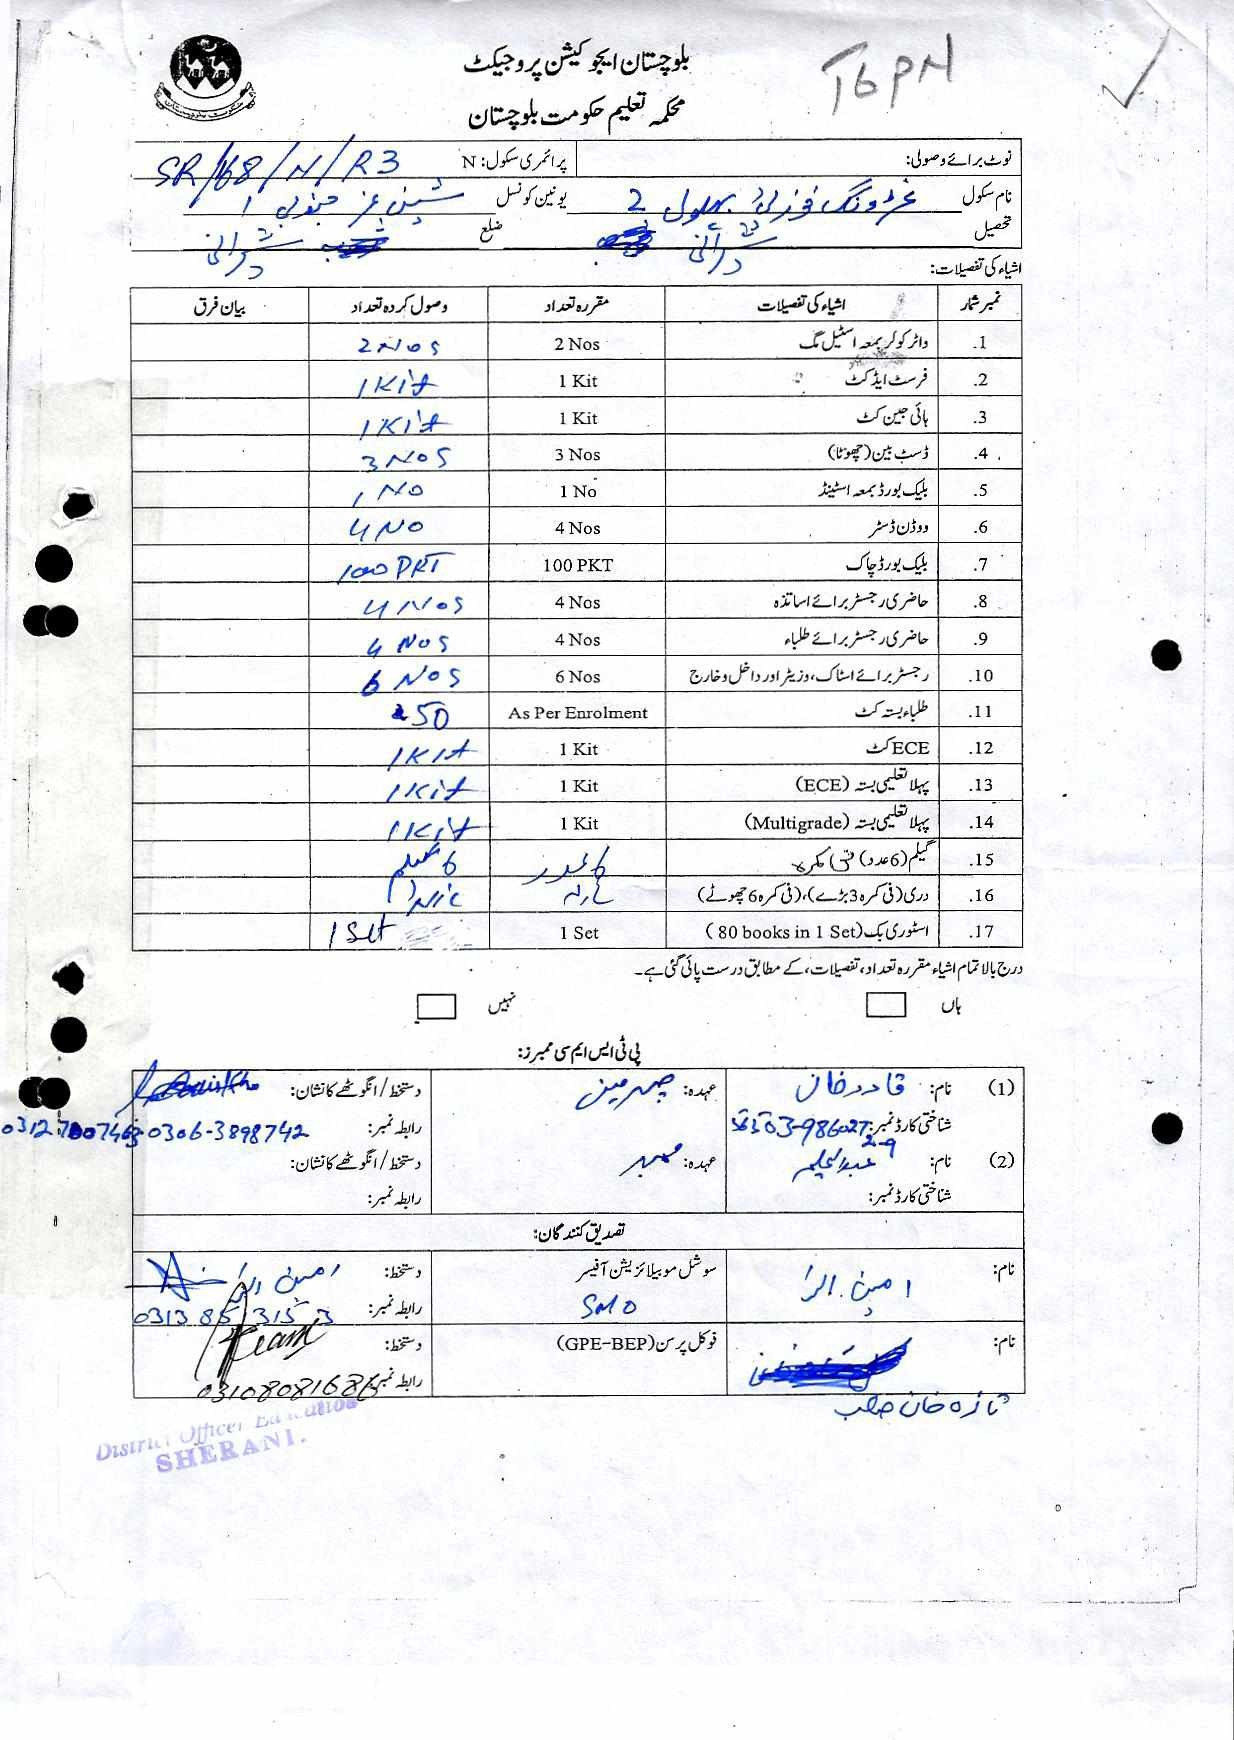 بلوچستان ایجوکیشن پروجیکٹ
T6PN
محکمہ تعلیم حکومت بلوچستان
نوٹ برائے وصولی: پرائمری سکول: N SR/168/N/R3
نام سکول بہلول 2 یونین کونسل 1
تحصیل شرانی ضلع شرانی
اشیاء کی تفصیلات:
نمبر شمار اشیاء کی تفصیلات مقررہ تعداد وصول کردہ تعداد بیان فرق
1. واٹر کولر بمعہ اسٹیل مگ 2 Nos 2 Nos
2. فرسٹ ایڈ کٹ 1 Kit 1 Kit
3. ہائی جین کٹ 1 Kit 1 Kit
4. ڈسٹ بین (چھوٹا) 3 Nos 3 Nos
5. بلیک بورڈ بمعہ اسٹینڈ 1 No 1 No
6. ووڈن ڈسٹر 4 Nos 4 No
7. بلیک بورڈ چاک 100 PKT 100 PKT
8. حاضری رجسٹر برائے اساتذہ 4 Nos 4 Nos
9. حاضری رجسٹر برائے طلباء 4 Nos 4 Nos
10. رجسٹر برائے اسٹاک، وزیٹر اور داخل و خارج 6 Nos 6 Nos
11. طلباء بستہ کٹ As Per Enrolment 50
12. ECE کٹ 1 Kit 1 Kit
13. پہلا تعلیمی بستہ (ECE) 1 Kit 1 Kit
14. پہلا تعلیمی بستہ (Multigrade) 1 Kit 1 Kit
15. گلیم (6 عدد) فی کمرہ 6 عدد 6 گلیم
16. دری (فی کمرہ 3 بڑے)، (فی کمرہ 6 چھوٹے)
17. اسٹوری بک (80 books in 1 Set) 1 Set 1 Set
درج بالا تمام اشیاء مقررہ تعداد، تفصیلات، کے مطابق درست پائی گئی ہے۔
ہاں نہیں
پی ٹی ایس ایم سی ممبرز:
(1) نام: قادر خان عہدہ: چیرمین دستخط/انگوٹھے کا نشان:
شناختی کارڈ نمبر: رابطہ نمبر: 0306-3898742
(2) نام: عبدالحلیم عہدہ: ممبر دستخط/انگوٹھے کا نشان:
شناختی کارڈ نمبر: رابطہ نمبر:
تصدیق کنندگان:
نام: امین اللہ سوشل موبیلائزیشن آفیسر دستخط: امین اللہ
SMO رابطہ نمبر: 0313 8513153
نام: فوکل پرسن (GPE-BEP) دستخط:
رابطہ نمبر: 03108081686
تازہ خان صاحب
District Officer Education
SHERANI.